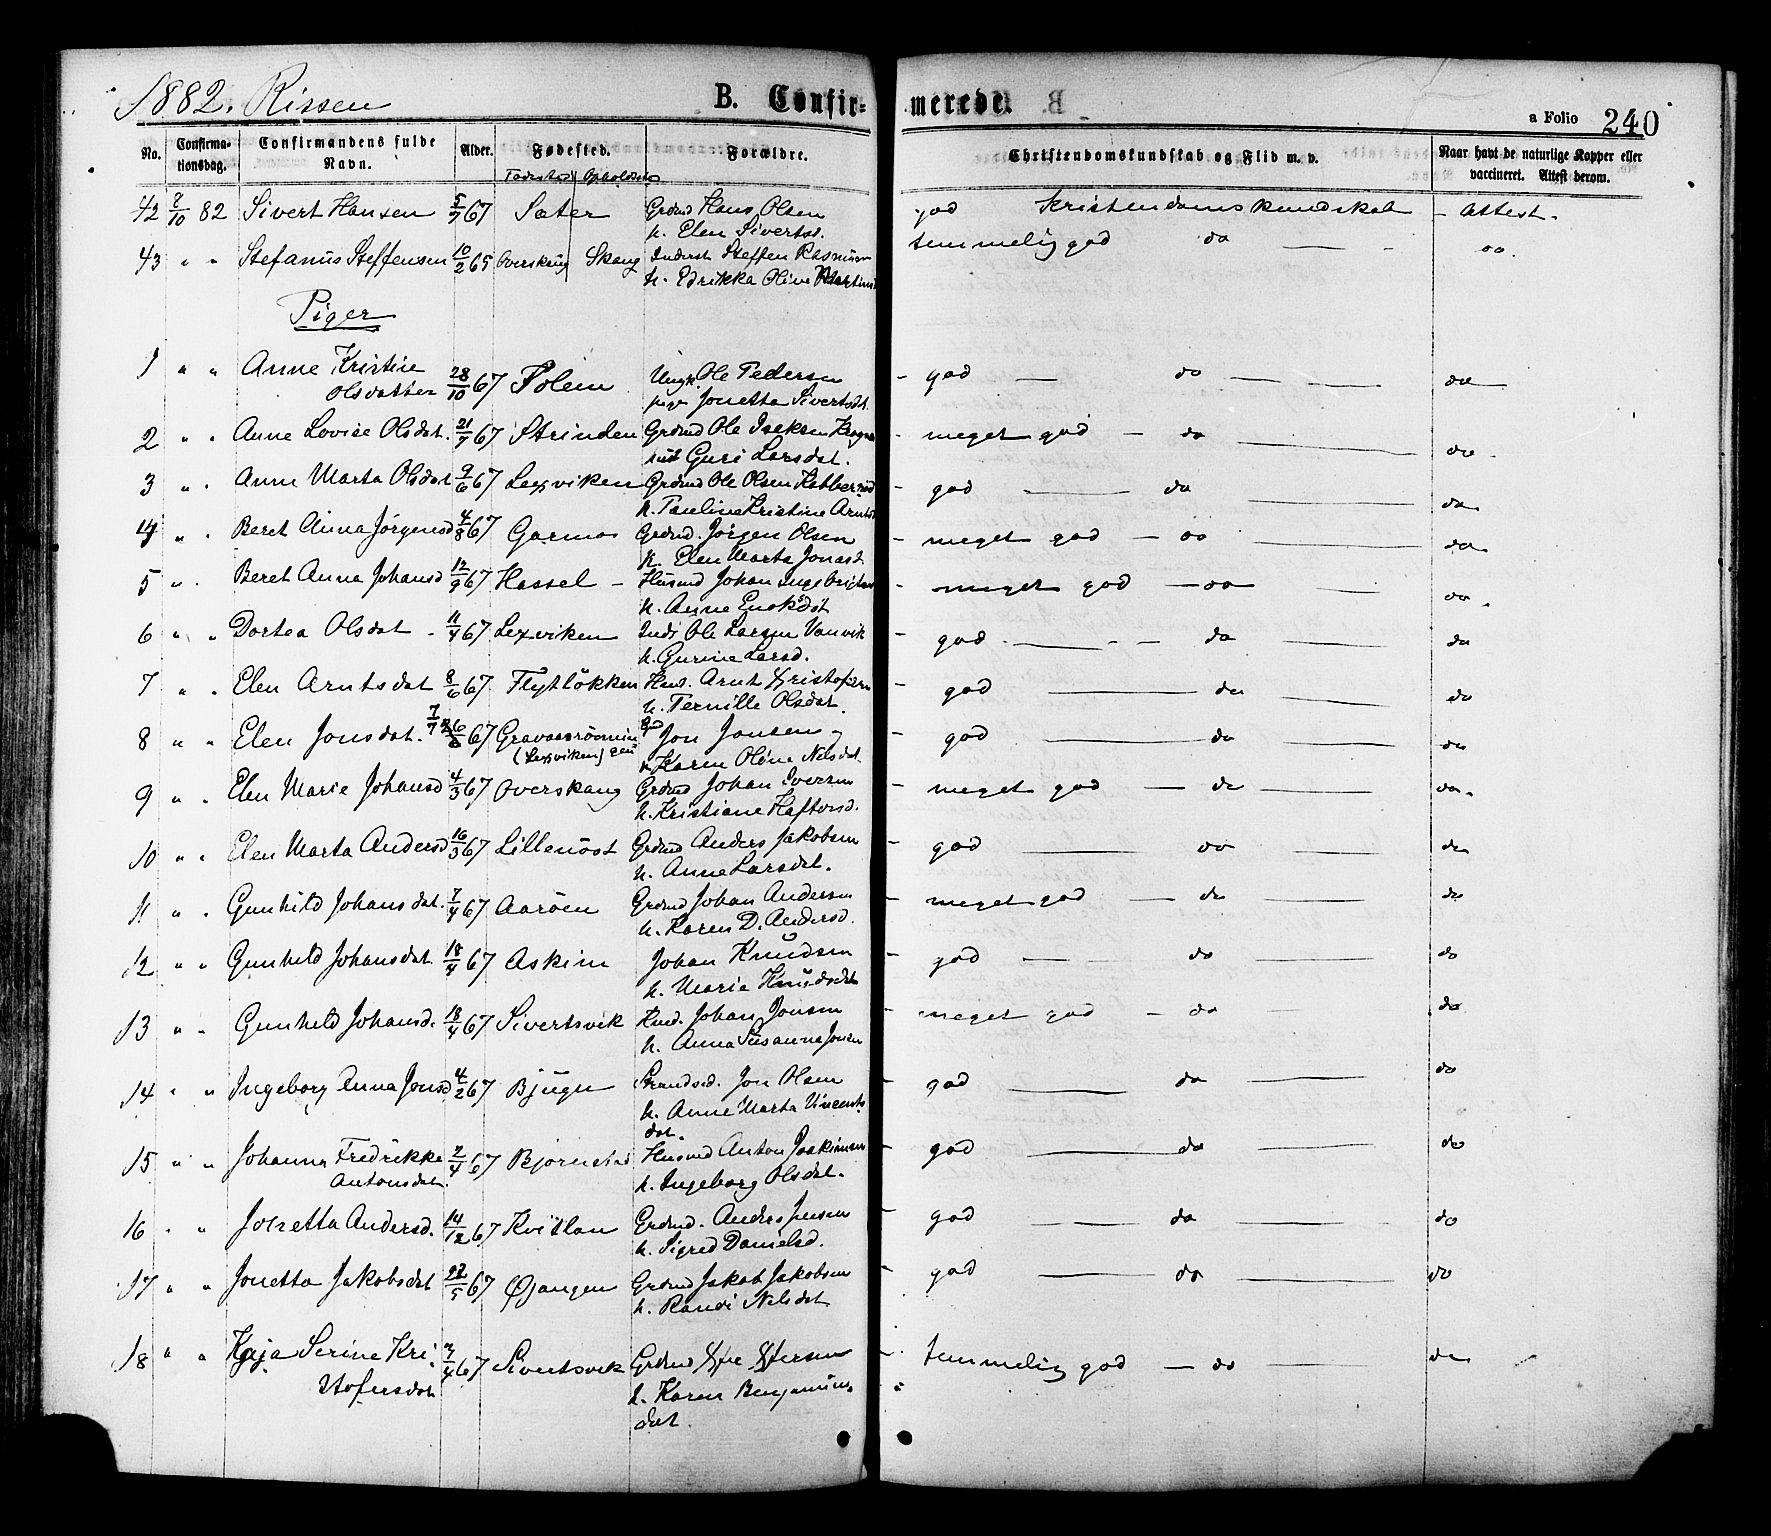 1882. Rissen B. Confir-merede. a Folio 240
No. Confirma-tionsdag. Confirmandens fulde Navn. Alder. Fødested. Forældre. Christendomskundskab og Flid m. v. Naar havt de naturlige Kopper eller vaccineret. Attest derom.
Fødested Opholdssted
42 8/10 82 Sivert Hansen 5/7 67 Sæter Grdmd Hans Olsen god Kristendomskundskab - Attest.
h. Elen Sivertsd.
43 " " Stefanus Steffensen 10/2 65 Overskaug Skaug Inderst Steffen Rasmusen temmelig god do do.
h. Edrikka Olive
Piger
1 " " Anne Kristine 28/10 67 Folein Ungk. Ole Pedersen - god do do
Olsdatter pige Jonetta Sivertsdt.
2 " " Anne Lovise Olsdat. 21/7 67 Strinden Grdmd Ole Iseksen - meget god - do do.
Guri Larsdat.
3 " " Anne Marta Olsdat 9/6 67 Lexviken Grdmd Ole Olsen - god do do.
h. Pauline Kristine
4 " " Beret Anna Jørgensd 4/8 67 Gormo Grdmd. Jörgen Olsen - meget god - do do
h. Elen Marta Jonasd
5 " " Beret Anna Johansd 12/9 67 Hassel - Husmd Johan Ingebrigtsen meget god - do do.
h. Anne Enoksdat
6 " " Dortea Olsdat - 11/4 67 Lexviken Inds Ole Larsen Vanvik - god do do
h. Gurine Larsd.
7 " " Elen Arntsdat 8/6 67 Flytlökken Husd. Arnt Kristofersen - god do do
h. Pernille Olsdat.
8 " " Elen Jonsdat. 7/7 67 Jon Jonsen - god do do
(Lexviken) h. Karen Oline Nilsdat
9 " " Elen Marie Johansd 4/3 67 Overskaug Grdmd Johan Iversen - meget god - do do.
h. Kristiane Haftorsd.
10 " " Elen Marta Andersd 16/3 67 Lillenöst Grdmd Anders Jakobsen - god do do
h. Anne Larsdat.
11 " " Gunhild Johansdat. 7/4 67 Aaröen Grdmd Johan Andersen - meget god - do do
h. Karen D. Andersd.
12 " " Gunhild Johansdat 18/4 67 Askim Johan Knudsen - god - do do
h. Maria Knudsdat
13 " " Gunhild Johansd. 18/4 67 Sivertsvik Husd. Johan Jonsen - meget god - do do
h. Anna Susanna
14 " " Ingeborg Anna Jonsd 4/2 67 Bjugn Strandsd. Jon Olsen - god do do
h. Anne Marta Vincents
dat.
15 " " Johanna Fredrikke 2/4 67 Bjørnstad Husmd Anton Joakimsen - god do do
Antonsdat. h. Ingeborg Olsdat.
16 " " Jonetta Andersd. 14/12 67 Kvitlan Grdmd. Anders Jensen - god do do
h. Sigrid Danielsd.
17 " " Jonetta Jakobsdat 22/5 67 Øjangen Grdmd Jakob Jakobsen - god do do
h. Randi Nilsdat
18 " " Kaja Serine Kri- 7/4 67 Sivertsvik Grdmd - temmelig god - do do
stofersdat h. Karen Benjamins
dat.